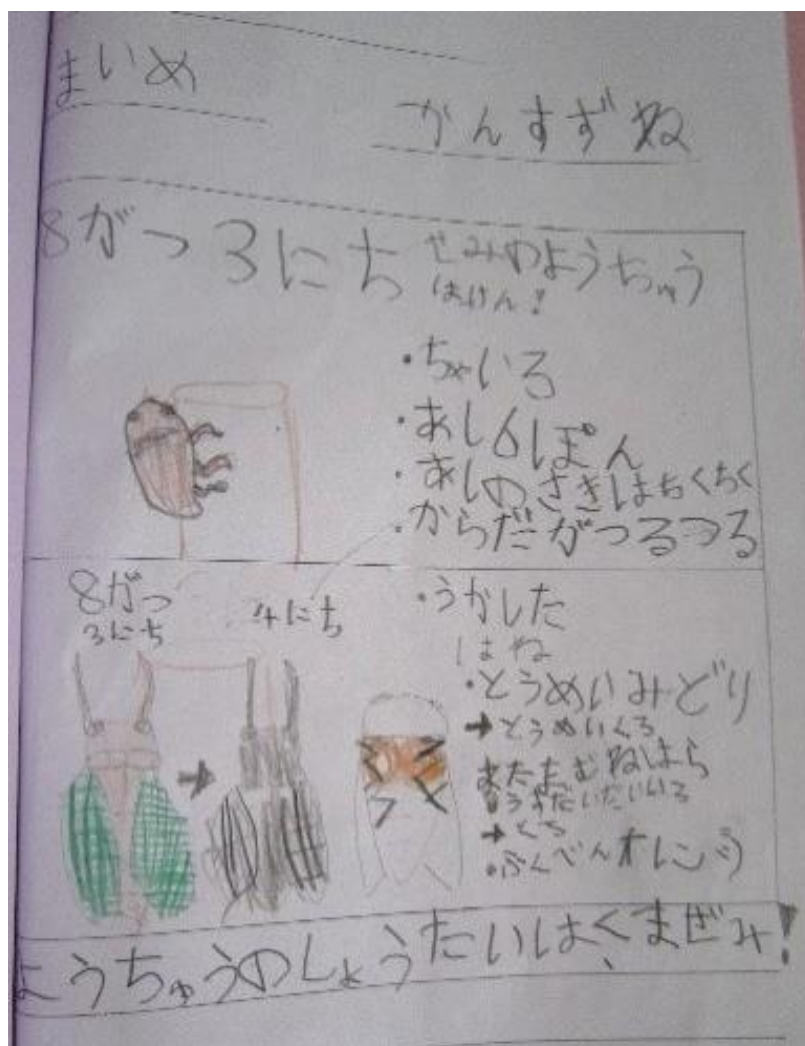 まいめ
かんすずね
8がつ3にち せみのようちゅう
はけん!
・ちゃいろ
・あし6ぽん
・あしのさきはちくちく
・からだがつるつる
8がつ
3にち
4にち
・うかした
はね
・とうめいみどり
→とうめいくろ
あたまむねはら
うすだいだいいろ
→くろ
・ふくべんオレンジ
ようちゅうのしょうたいは、くまぜみ!